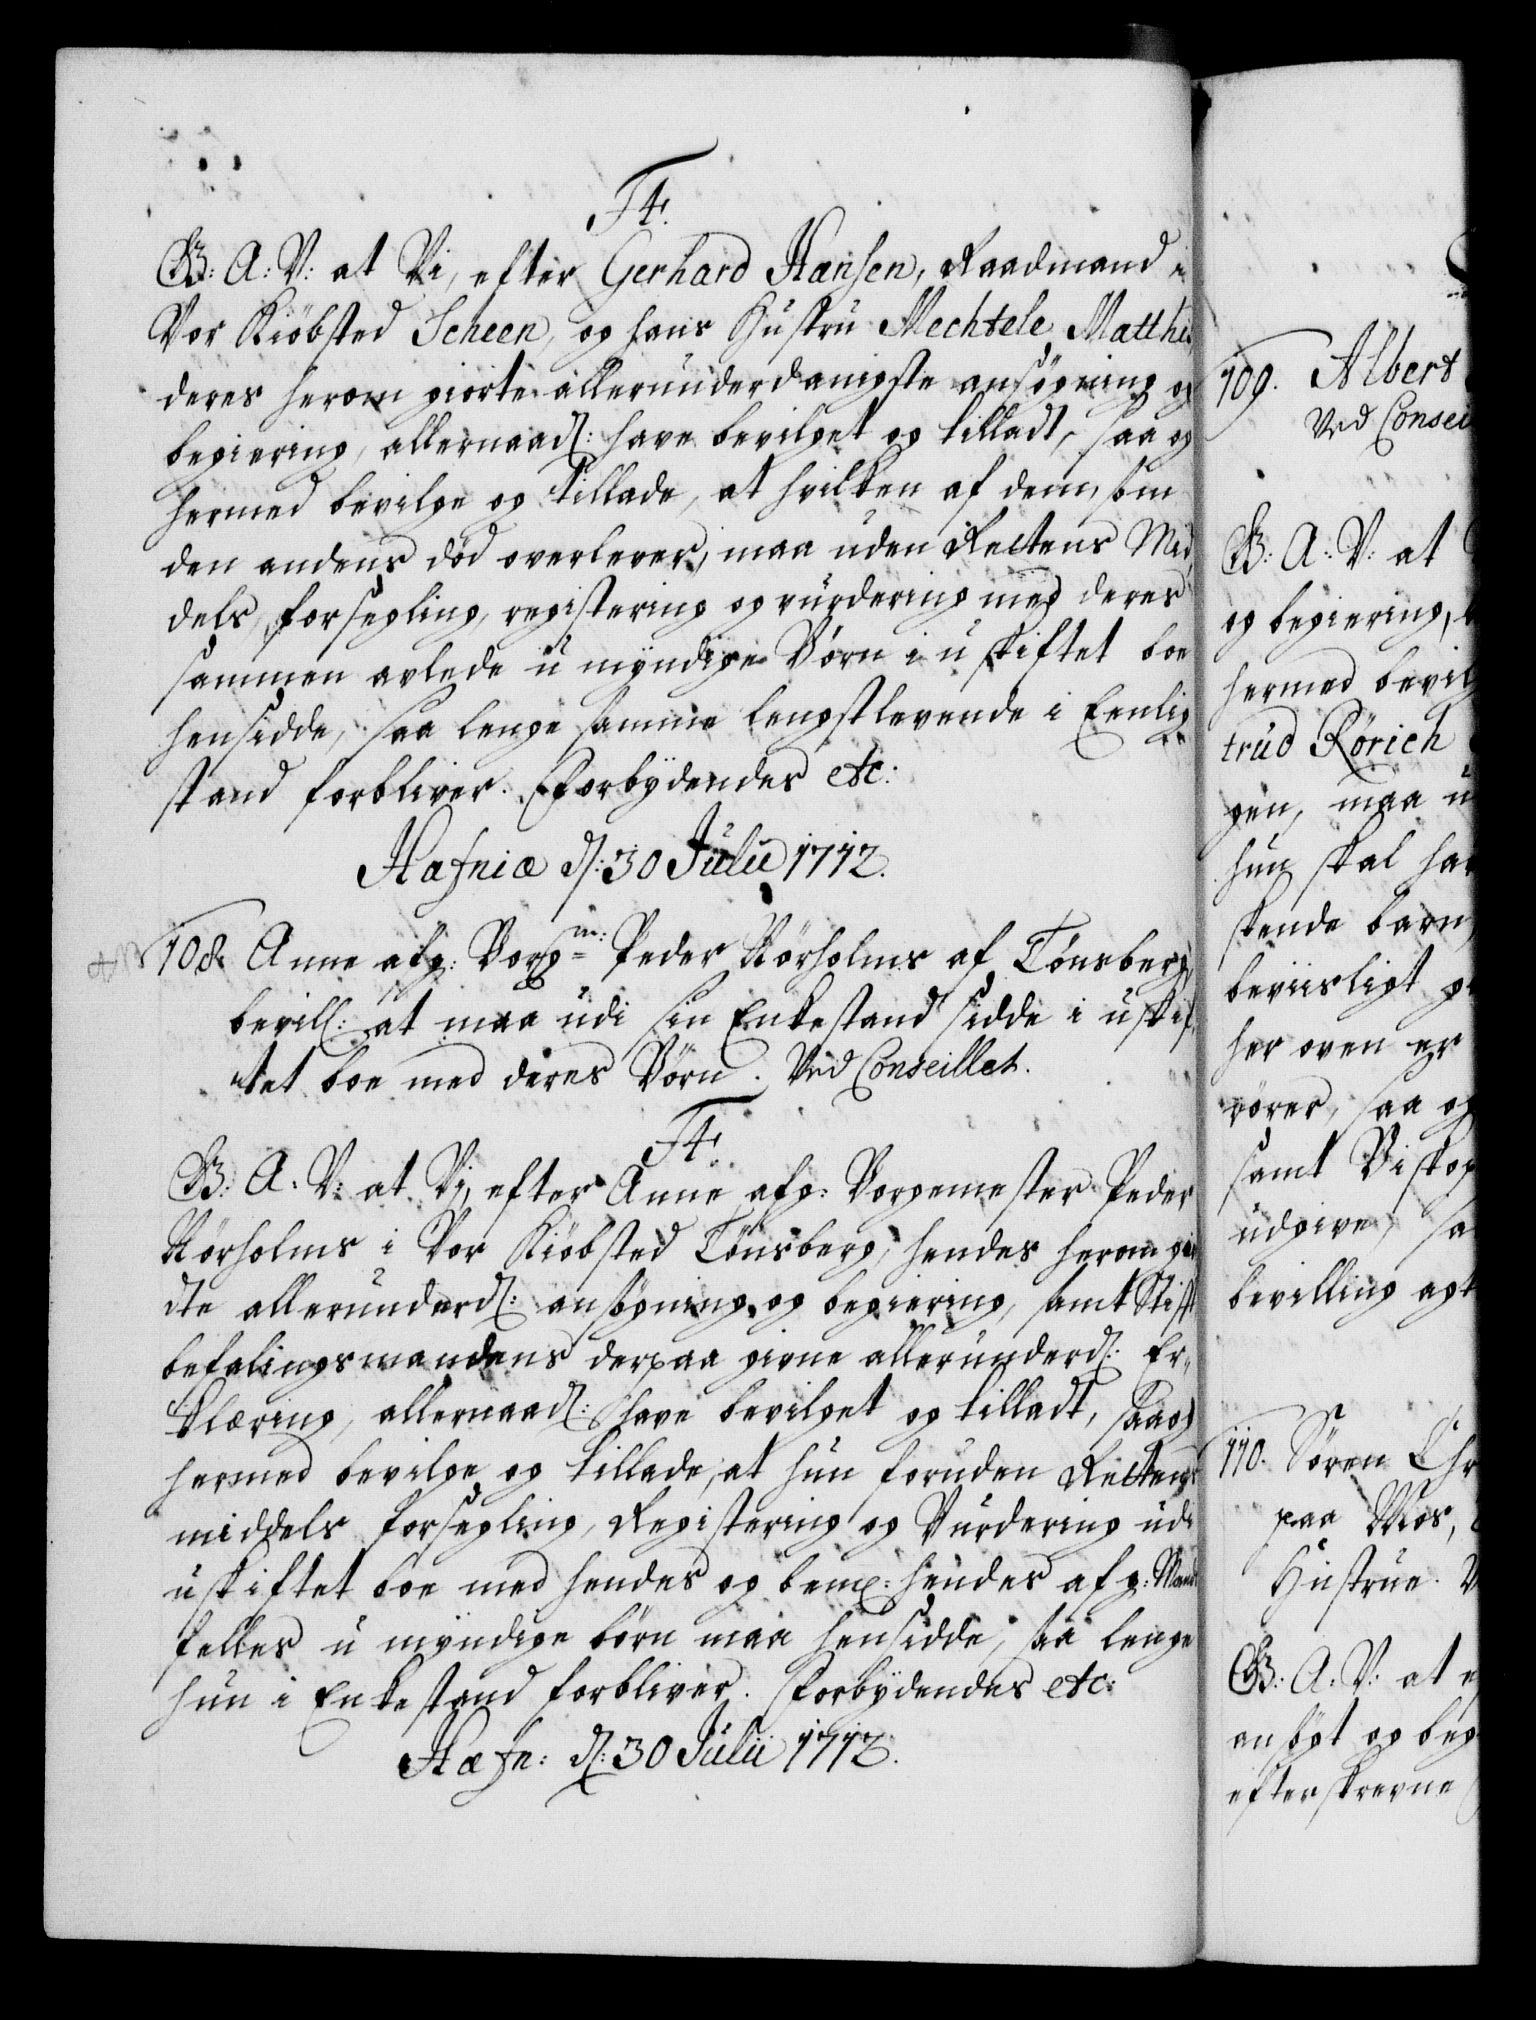 F4.
G: A: V: at Vi, efter Gerhard Hansen, Raadmand i
Vor Kiöbsted Scheen, og hans Hustru Mechtele Matthi
deres herom giorte allerunderdanigste ansøgning og
begiering, allernaad: have bevilget og tilladt, saa og
hermed bevilge og tillade, at hvilken af dem, som
den andens död overlever, maa uden Rettens Mid
dels forsegling, registering og vurdering med deres
sammen avlede u myndige Börn i u skiftet boe
hensidde, saa lenge samme lengstlevende i Eenlig
stand forbliver. Forbydendes etc:
Hafniæ d: 30 Julii 1712.
108. Anne afg: Borgm: Peder Nörholms af Tönsberg,
bevill: at maa udi sin Enkestand sidde i uskif
tet boe med deres Börn. Ved Conseillet.
F4.
G: A. V: at Vi, efter Anne afg: Borgemester Peder
Nörholms i Vor Kiöbsted Tönsberg, hendes herom gior
dte allerunderd: ansögning og begiering, samt Stift
befalingsmandens derpaa givne allerunderd: Er-
klæring, allernaad: have bevilget og tilladt, saa og
hermed bevilge og tillade, at hun foruden Rettens
middels forsegling, Registering og Vurdering udi
uskiftet boe med hendes og bem: hendes afg: Mands
felles u myndige börn maa hensidde, saa lenge
hun i Enkestand forbliver. Forbydendes etc:
Hafn: d: 30 Julii 1712.
109. Albert
Ved Consei
G: A: V: at
og begiering,
hermed bevilg
trud Rörich
gen, maa u
hun skal ha
skende barn,
beviisligt g
her oven er
rörer, saa og
samt Biskop
udgive, sa
bevilling agt
110. Sören Chr
paa Mos,
Hustrue. V
G: A. V: at e
ansögt og beg
efterskrevne